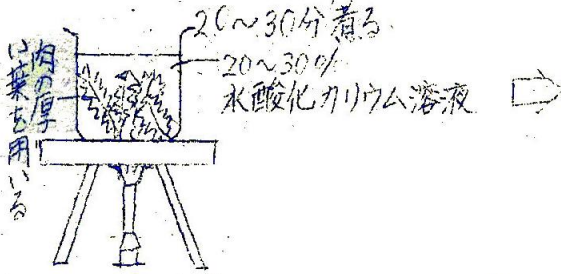 20〜30分煮る
20〜30%
水酸化カリウム溶液
肉の厚
い葉を用いる